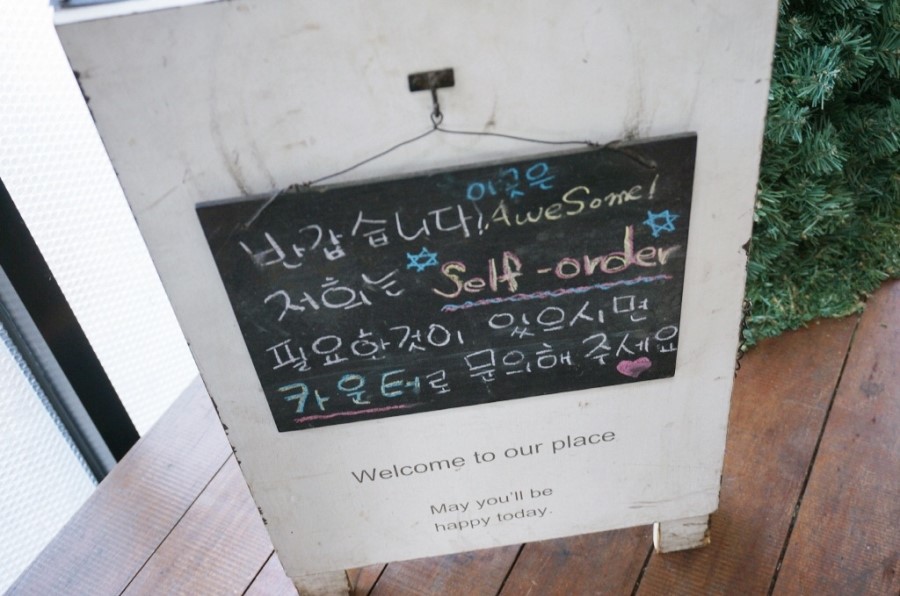 반갑습니다! 이곳은 Awesome!
저희는 Self-order
필요한것이 있으시면
카운터로 문의해 주세요
Welcome to our place
May you'll be
happy today.